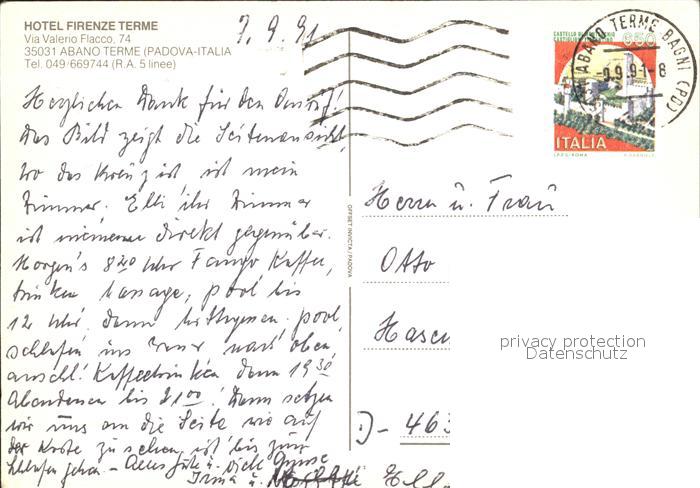 HOTEL FIRENZE TERME
Via Valerio Flacco, 74
35031 ABANO TERME (PADOVA-ITALIA
Tel. 049/669744 (R.A. 5 linee)
7.9.91
Herzlichen Dank für den Anruf!
Das Bild zeigt die Seitenansicht,
wo das Kreuz ist ist mein
Zimmer. Elli ihr Zimmer
ist meinem direkt gegenüber.
Morgen's 8 20 Uhr Fango Kaffee,
trinken Massage, pool bis
12 Uhr, dann Mittagessen. pool,
schlafen ins nach oben
anschl. Kaffeetrinken dann 19 30
Abendessen bis 21 00! Dann setzen
wir uns an die Seite wie auf
der Karte zu sehen ist bis zum
schlafen gehen – Alles Gute u. viele Grüsse
Irma u.
OFFSET INVICTA / PADOVA
650
ITALIA
I.P.Z.S. ROMA
ABANO TERME BAGNI (PD)
-9.9.91-8
Herrn u. Frau
Otto
Hasen
D - 463
privacy protection
Datenschutz